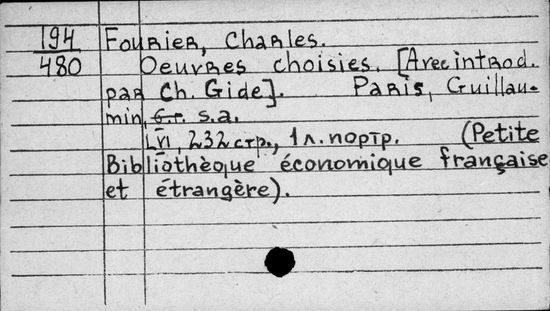 194 Fourier, Charles.
480 Oeuvres choisies. [Avec introd.
par Ch. Gide]. Paris, Guillau-
min, s.a.
LVI, 232 стр., 1 л. портр. (Petite
Bibliothèque économique française
et étrangère).